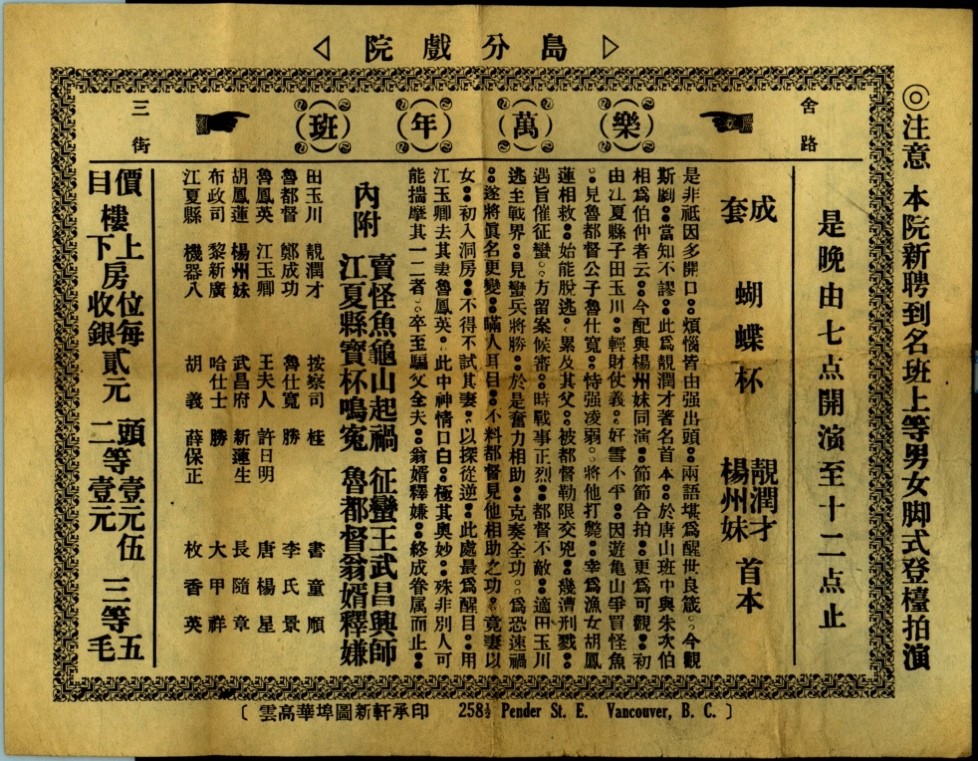 島分戲院
◎注意 本院新聘到名班上等男女脚式登檯拍演
舍路
樂萬年班
三街
是晚由七点開演至十二点止
成套 蝴蝶杯 靚潤才 楊州妹 首本
是非祇因多開口。煩惱皆由强出頭。兩語堪爲醒世良箴。今觀
斯劇。當知不謬。此爲靚潤才著名首本。於唐山班中與朱次伯
相爲伯仲者云。今配與楊州妹同演。節節合拍。更爲可觀。初
由江夏縣子田玉川。輕財仗義。好雪不平。因遊亀山爭買怪魚
。見魯都督公子魯仕寬。恃强凌弱。將他打斃。幸爲漁女胡鳳
蓮相救。始能脫逃。累及其父。被都督勒限交兇。幾遭刑戮。
遇旨催征蠻。方留案候審。時戰事正烈。都督不敵。適田玉川
逃至戰界。見蠻兵將勝。於是奮力相助。克奏全功。爲恐速禍
。遂將眞名更變。瞞人耳目。不料都督見他相助之功。竟妻以
女。初入洞房。不得不試其妻。以探從逆。此處最爲醒目。用
江玉卿去其妻魯鳳英。此中神情口白。極其奥妙。殊非別人可
能揣摩其一二者。卒至騙父全夫。翁婿釋嫌。終成眷属而止。
內附 賣怪魚龜山起禍 征蠻王武昌興師
江夏縣寶杯鳴寃 魯都督翁婿釋嫌
田玉川 靚潤才 按察司 桂 書童 順
魯都督 鄭成功 魯仕寬 勝 李氏 景
魯鳳英 江玉卿 王夫人 許日明 唐楊 星
胡鳳蓮 楊州妹 武昌府 新蓮生 長隨 章
布政司 黎新廣 哈仕士 勝 大甲 祥
江夏縣 機器八 胡義 薛保正 枚香 英
價目 樓上下房位每收銀貳元 頭二等壹元伍壹元 三等五毛
〔 雲高華埠圖新軒承印 258½ Pender St. E. Vancouver, B. C. 〕